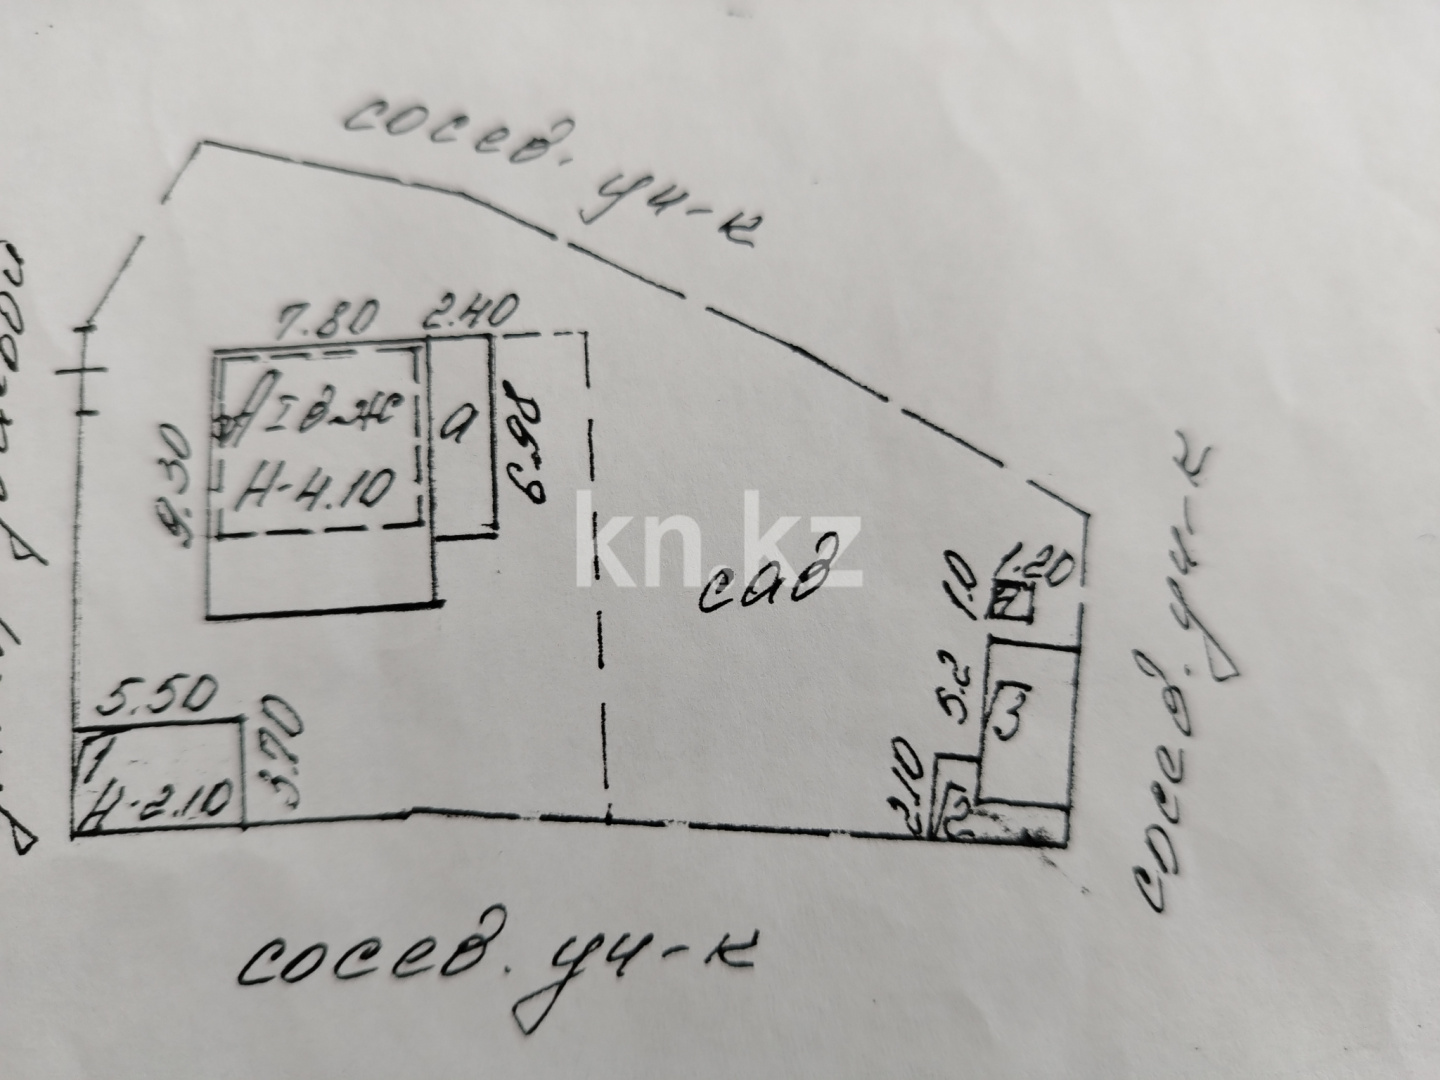 сосев. уч-к
7.80
2.40
АI в ж
Н-4.10
а
9.30
6.98
kn.kz
сад
1.20
1.0
5.2
3
2.10
2
5.50
3.70
1
Н-2.10
сосев. уч-к
сосев. уч-к